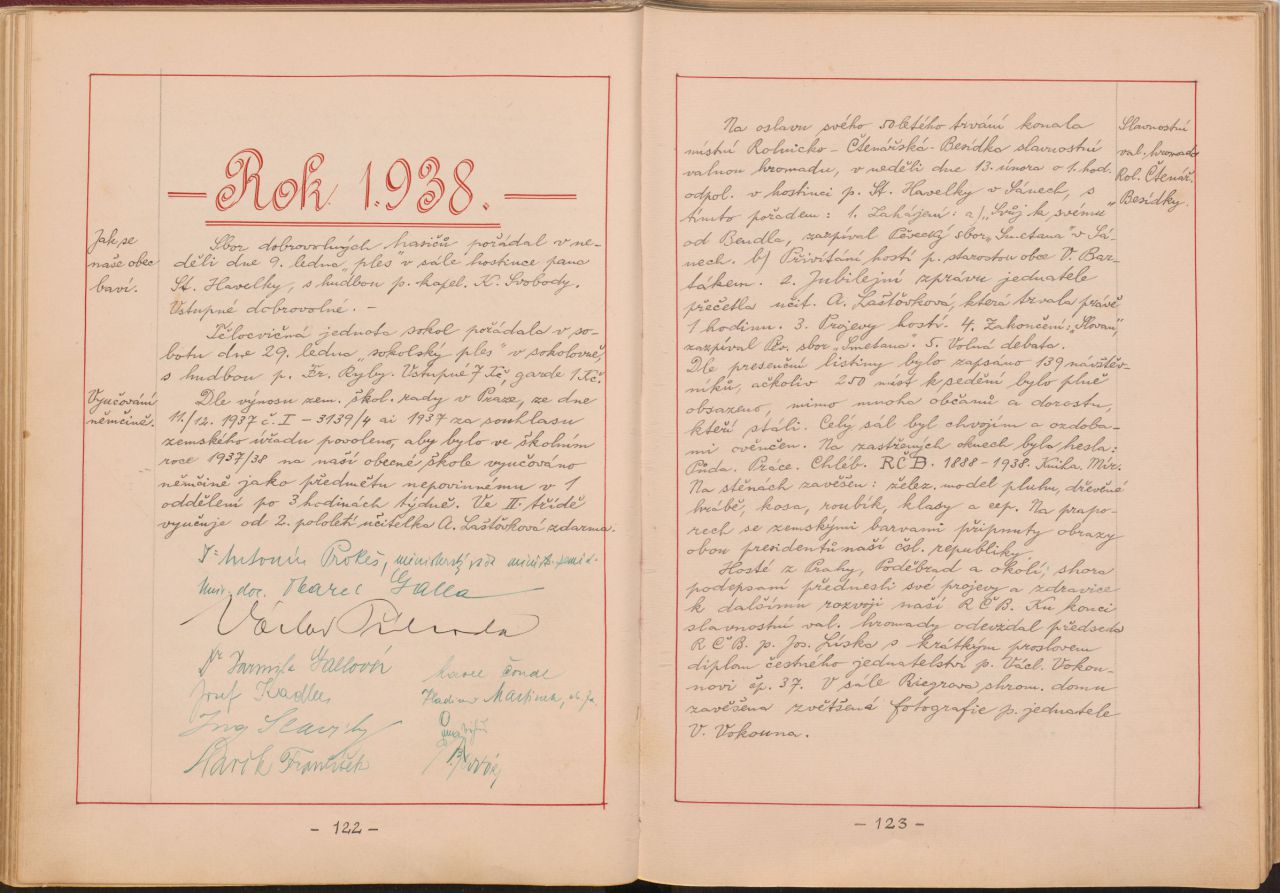 Rok 1938.
Jak se
naše obec
baví.
Sbor dobrovolných hasičů pořádal v ne-
děli dne 9. ledna „ples" v sále hostince pana
St. Havelky, s hudbou p. kapel. K. Svobody.
Vstupné dobrovolné. -
Tělocvičná jednota sokol pořádala v so-
botu dne 29. ledna „sokolský ples" v sokolovně,
s hudbou p. Fr. Ryby. Vstupné 7 Kč, garde 1 Kč.
Vyučování
němčině.
Dle výnosu zem. škol. rady v Praze, ze dne
11./12. 1937 č. I - 3139/4 ai 1937 za souhlasu
zemského úřadu povoleno, aby bylo ve školním
roce 1937/38 na naší obecné škole vyučováno
němčině jako předmětu nepovinnému v 1
oddělení po 3 hodinách týdně. Ve II. třídě
vyučuje od 2. pololetí učitelka A. Laštůvková zdarma.
Antonín Prokeš, ministerský rada
Univ. doc. Karel Galla
Václav
Dr Jarmila Gallová
Josef Kadlec
Ing
Mařík František
Karel
Martinek
- 122 -
Na oslavu svého 50letého trvání konala
místní Rolnicko-Čtenářská-Besídka slavnostní
valnou hromadu, v neděli dne 13. února o 1. hod.
odpol. v hostinci p. St. Havelky v Sánech, s
tímto pořadem: 1. Zahájení: a) „Svůj k svému"
od Bendla, zazpíval Pěvecký sbor „Smetana" v Sá-
nech. b) Přivítání hostí p. starostou obce V. Bar-
tákem. 2. Jubilejní zprávu jednatele
přečetla učit. A. Laštůvková, která trvala právě
1 hodinu. 3. Projevy hostí. 4. Zakončení: „Slovan",
zazpíval Pěv. sbor „Smetana". 5. Volná debata.
Dle presenční listiny bylo zapsáno 139 návštěv-
níků, ačkoliv 250 míst k sedění bylo plně
obsazeno, mimo mnoha občanů a dorostu,
kteří stáli. Celý sál byl chvojím a ozdoba-
mi ověnčen. Na zastřených oknech byla hesla:
Půda. Práce. Chléb. RČB. 1888-1938. Kniha. Mír.
Na stěnách zavěšen: želez. model pluhu, dřevěné
hrábě, kosa, roubík, klasy a cep. Na prapo-
rech se zemskými barvami připnuty obrazy
obou presidentů naší čsl. republiky.
Hosté z Prahy, Poděbrad a okolí, shora
podepsaní přednesli své projevy a zdravice
k dalšímu rozvoji naší R Č B. Ku konci
slavnostní val. hromady odevzdal předseda
R Č B. p. Jos. Líska s krátkým proslovem
diplom čestného jednatelství p. Václ. Vokou-
novi čp. 37. V sále Riegrova shrom. domu
zavěšena zvětšená fotografie p. jednatele
V. Vokouna.
Slavnostní
val. hromada
Rol. Čtenář.
Besídky.
- 123 -